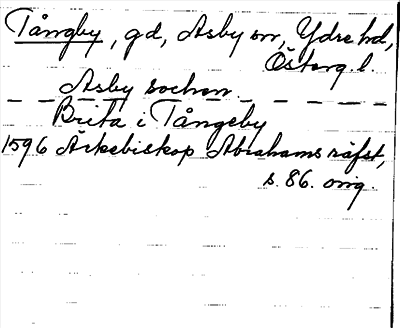 Tångby, gd, Asby sn, Ydre hd,
Österg l.
Asby socken
Brita i Tångeby
1596 Ärkebiskop Abrahams räfst,
s. 86. orig.